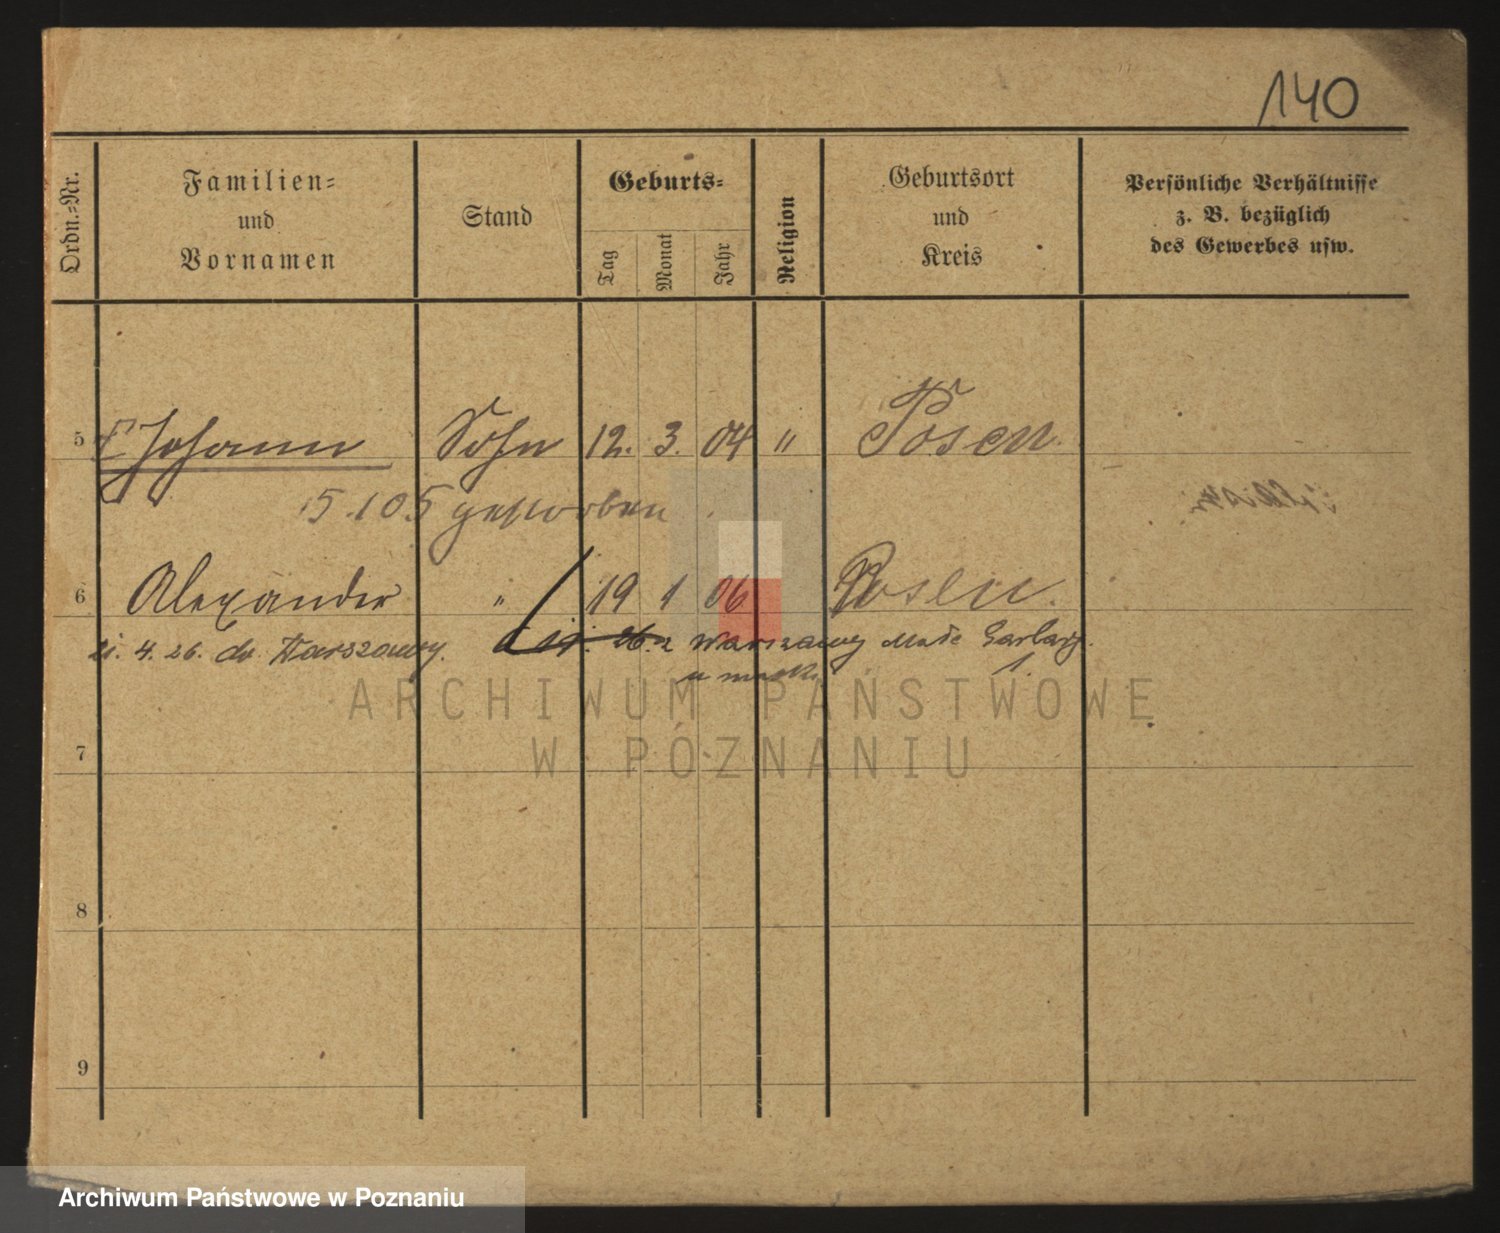 140
Ordn.-Nr.
Familien-
und
Vornamen
Stand
Geburts-
Tag
Monat
Jahr
Religion
Geburtsort
und
Kreis
Persönliche Verhältnisse
z. B. bezüglich
des Gewerbes usw.
5 Johann Sohn 12. 3. 04 " Posen.
5 1 05 gestorben
6 Alexander " 19 1 06 Posen.
4. 26. do Warszawy.
26. z Warszawy Małe Garbary
1.
7
8
9
ARCHIWUM PAŃSTWOWE
W POZNANIU
Archiwum Państwowe w Poznaniu